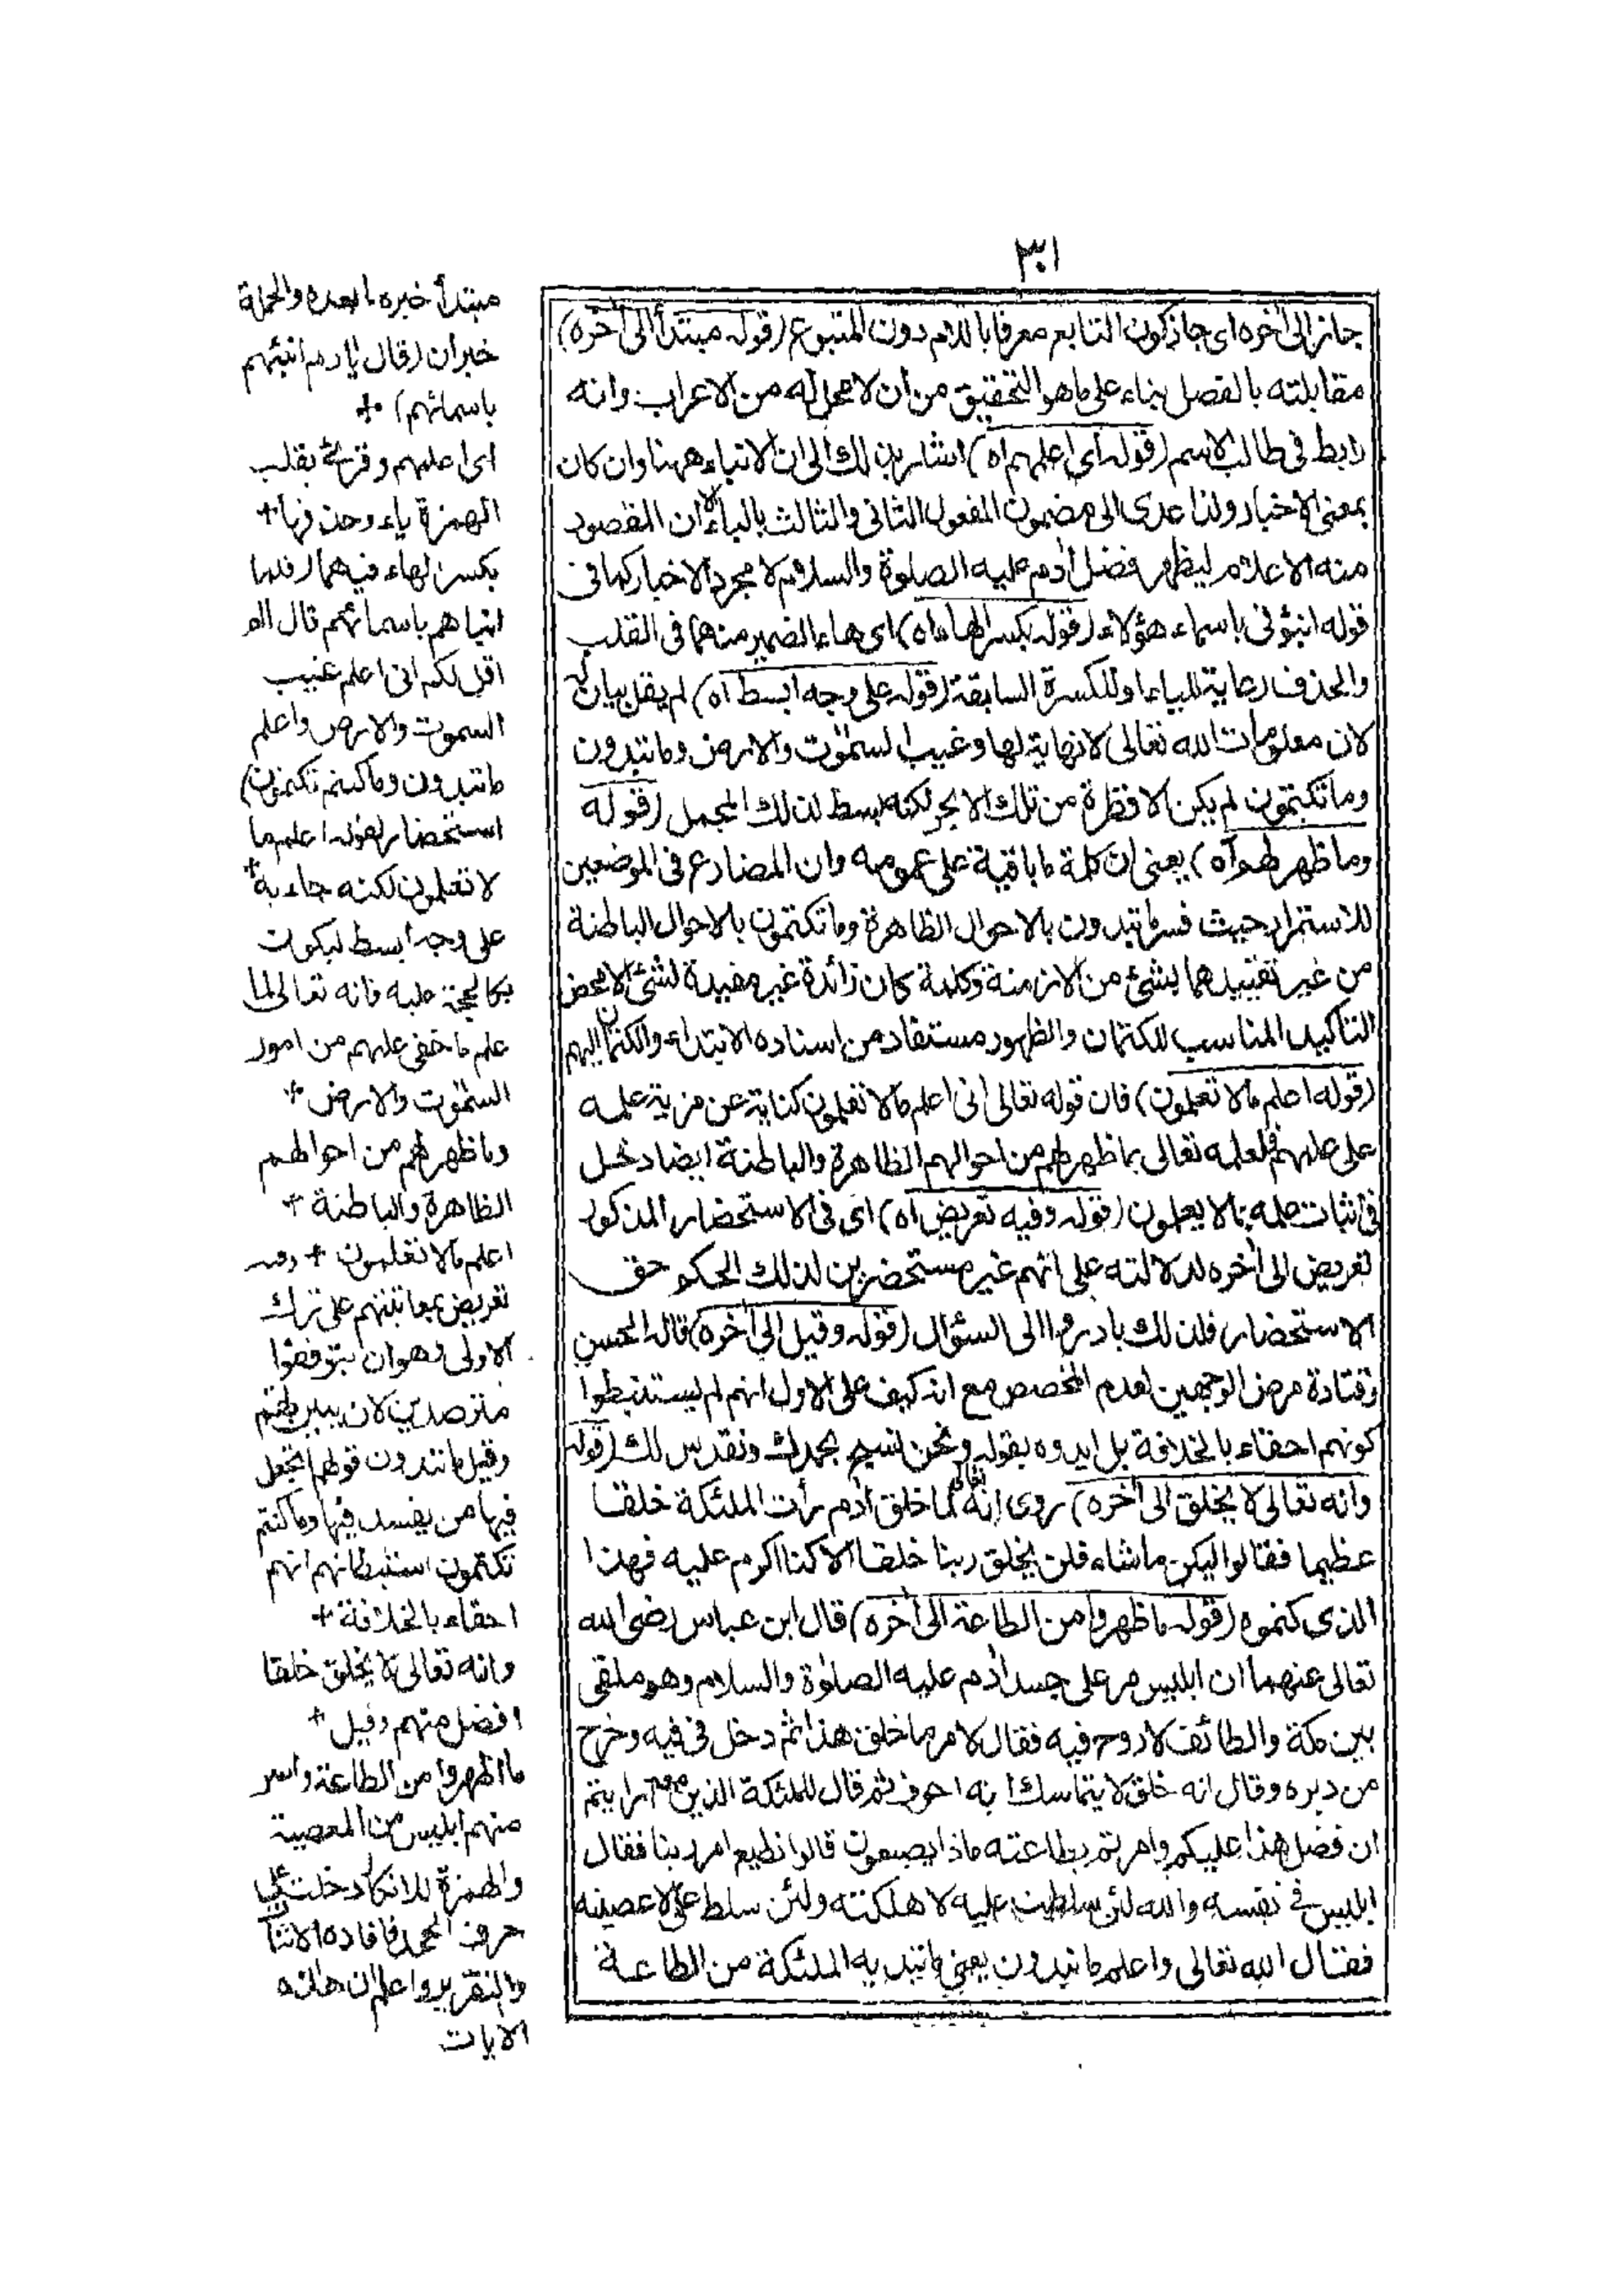 ٣٠١
جائز الى آخره اى جاز كون التابع معرفا باللام دون المتبوع (قوله مبتدأ الى آخره)
مقابلته بالفصل بناء على ما هو التحقيق من ان لا محل له من الاعراب وانه
رابط فى طالب الاسم (قوله اى اعلمهم اه) اشار بذلك الى ان الانباء ههنا وان كان
بمعنى الاخبار ولذا عدى الى مضمون المفعول الثانى والثالث بالباء لان المقصود
منه الاعلام ليظهر فضل آدم عليه الصلوة والسلام لا مجرد الاخبار كما فى
قوله انبؤنى باسماء هؤلاء (قوله بكسر الهاء اه) اى هاء الضمير منهما فى القلب
والحذف رعاية للياء او للكسرة السابقة (قوله على وجه ابسط اه) لم يقل بيان له
لان معلومات الله تعالى لا نهاية لها وغيب السموٰت والارض وما تبدون
وما تكتمون لم يكن الا قطرة من تلك الابحر لكنه ابسط لذلك المجمل (قوله
وما ظهر لهم اه) يعنى ان كلمة ما باقية على عمومه وان المضارع فى الموضعين
للاستمرار حيث فسر ما تبدون بالاحوال الظاهرة وما تكتمون بالاحوال الباطنة
من غير تقييدهما بشئ من الازمنة وكلمة كان زائدة غير مفيدة لشئ الا محض
التاكيد المناسب للكتمان والظهور مستفاد من اسناده الابتداء والكتمان اليهم
(قوله اعلم ما لا تعلمون) فان قوله تعالى انى اعلم ما لا تعلمون كناية عن مزية علمه
على علمهم فلعلمه تعالى بما ظهر لهم من احوالهم الظاهرة والباطنة ايضا دخل
فى اثبات علمه بما لا يعلمون (قوله وفيه تعريض اه) اى فى الاستحضار المذكور
تعريض الى آخره لدلالته على انهم غير مستحضرين لذلك الحكم حق
الاستحضار فلذلك بادروا الى السؤال (قوله وقيل الى آخره) قاله الحسن
وقتادة مرض الوجهين لعدم المخصص مع انه كيف على الاول انهم لم يستنبطوا
كونهم احقاء بالخلافة بل ابدوه بقوله ونحن نسبح بحمدك ونقدس لك (قوله
وانه تعالى لا يخلق الى آخره) روى انه تعالى لما خلق آدم رأت الملئكة خلقا
عظيما فقالوا ليكن ما شاء فلن يخلق ربنا خلقا الا كنا اكرم عليه فهذا
الذى كتموه (قوله ما اظهروا من الطاعة الى آخره) قال ابن عباس رضى الله
تعالى عنهما ان ابليس مر على جسد آدم عليه الصلوٰة والسلام وهو ملقى
بين مكة والطائف لا روح فيه فقال لامر ما خلق هذا ثم دخل فى فيه وخرج
من دبره وقال انه خلق لا يتماسك لانه اجوف ثم قال للملئكة الذين معه ارايتم
ان فضل هذا عليكم وامرتم بطاعته ماذا تصنعون قالوا نطيع امر ربنا فقال
ابليس فى نفسه والله لئن سلطت عليه لاهلكنه ولئن سلط على لاعصينه
فقال الله تعالى واعلم ما تبدون يعنى ما تبديه الملئكة من الطاعة
مبتدأ خبره ما بعده والجملة
خبر ان (قال يا ادم انبئهم
باسمائهم) +
اى اعلمهم وقرئ بقلب
الهمزة ياء وحذفها +
بكسر الهاء فيهما (فلما
انباهم باسمائهم قال الم
اقل لكم انى اعلم غيب
السموٰت والارض واعلم
ما تبدون وما كنتم تكتمون)
استحضار لقوله اعلم ما
لا تعلمون لكنه جاء به +
على وجه ابسط ليكون
كالحجة عليه فانه تعالى لما
علم ما خفى عليهم من امور
السموٰت والارض +
وما ظهر لهم من احوالهم
الظاهرة والباطنة +
اعلم ما لا تعلمون + وفيه
تعريض بمعاتبتهم على ترك
الاولى وهو ان يتوقفوا
مترصدين لان يبين لهم
وقيل ما تبدون قولهم اتجعل
فيها من يفسد فيها وما كنتم
تكتمون استبطانهم انهم
احقاء بالخلافة +
وانه تعالى لا يخلق خلقا
افضل منهم وقيل +
ما اظهروا من الطاعة واسر
منهم ابليس من المعصية
والهمزة للانكار دخلت على
حرف الجحد فافادت الاثبات
والتقرير واعلم ان هذه
الايات